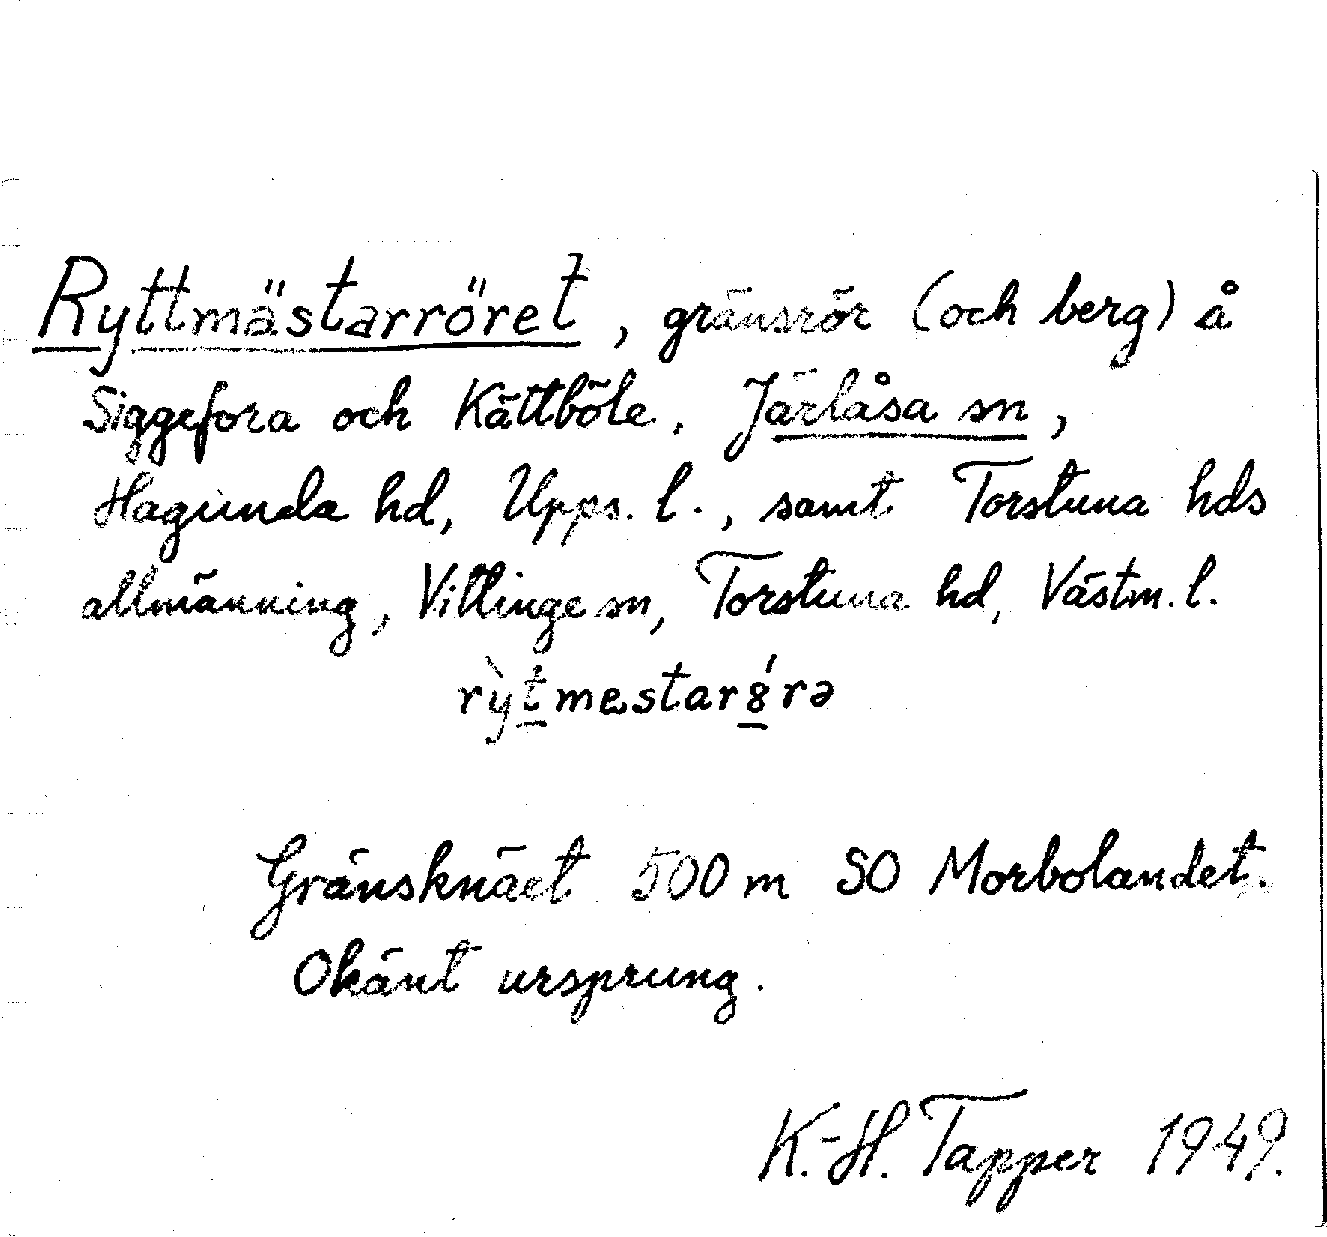 Ryttmästarröret, gränsrör (och berg) å
Siggefora och Kättböle, Järlåsa sn,
Hagunda hd, Upps. l., samt Torstuna hds
allmänning, Vittinge sn, Torstuna hd, Västm. l.
rỳt̲mestar8̲́rə
Gränsknäet 500 m SO Morbolandet.
Okänt ursprung.
K.-H. Tapper 1949.